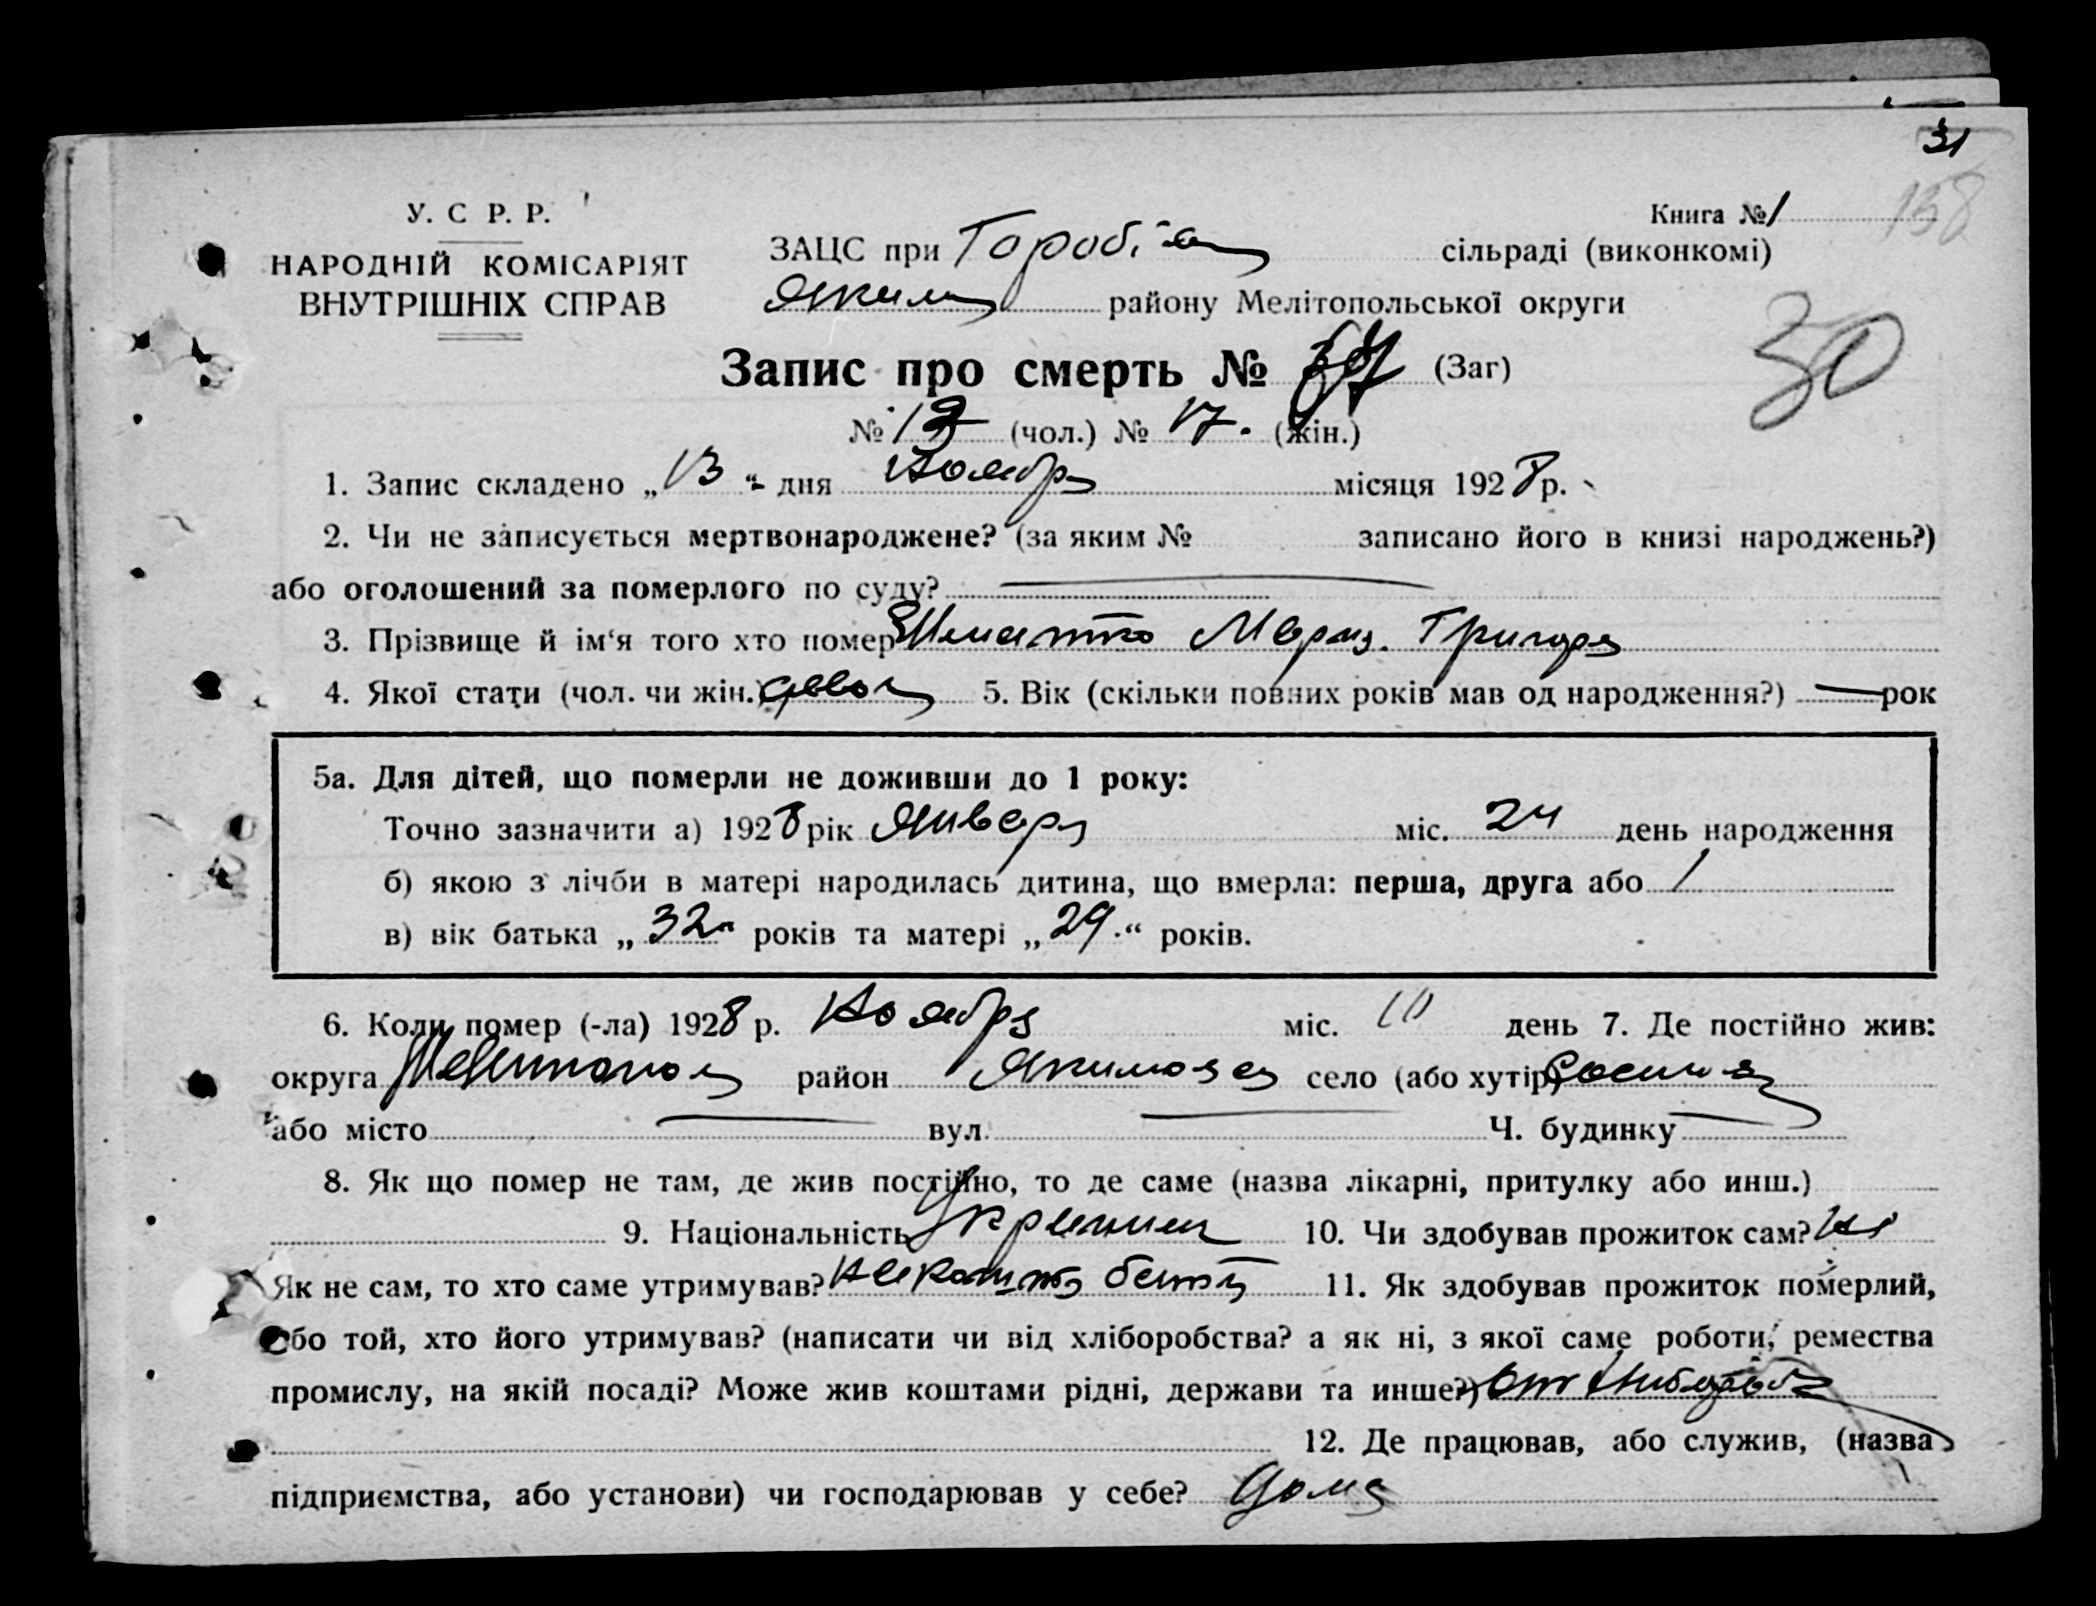 31
158
У. С Р. Р.
Книга № 1
НАРОДНІЙ КОМІСАРІЯТ
ВНУТРІШНІХ СПРАВ
ЗАЦС при сільраді (виконкомі)
району Мелітопольської округи
30
Запис про смерть № (Заг)
№ (чол.) № 17. (жін.)
1. Запис складено „13“ дня Ноября місяця 1928 р.
2. Чи не записується мертвонароджене? (за яким № записано його в книзі народжень?)
або оголошений за померлого по суду? —
3. Прізвище й ім‘я того хто помер Мария. Григоря
4. Якої стати (чол. чи жін.) 5. Вік (скільки повних років мав од народження?) — рок
5а. Для дітей, що померли не доживши до 1 року:
Точно зазначити а) 1928 рік Январь міс. 24 день народження
б) якою з лічби в матері народилась дитина, що вмерла: перша, друга або 1
в) вік батька „32“ років та матері „29.“ років.
6. Коли помер (-ла) 1928 р. Ноября міс. 10 день 7. Де постійно жив:
округа Мелитополь район село (або хутір)
або місто — вул. — Ч. будинку —
8. Як що помер не там, де жив постійно, то де саме (назва лікарні, притулку або инш.)
9. Національність 10. Чи здобував прожиток сам? Ні
Як не сам, то хто саме утримував? 11. Як здобував прожиток померлий,
або той, хто його утримував? (написати чи від хліборобства? а як ні, з якої саме роботи, ремества
промислу, на якій посаді? Може жив коштами рідні, держави та инше?) от
12. Де працював, або служив, (назва
підприємства, або установи) чи господарював у себе? Дома